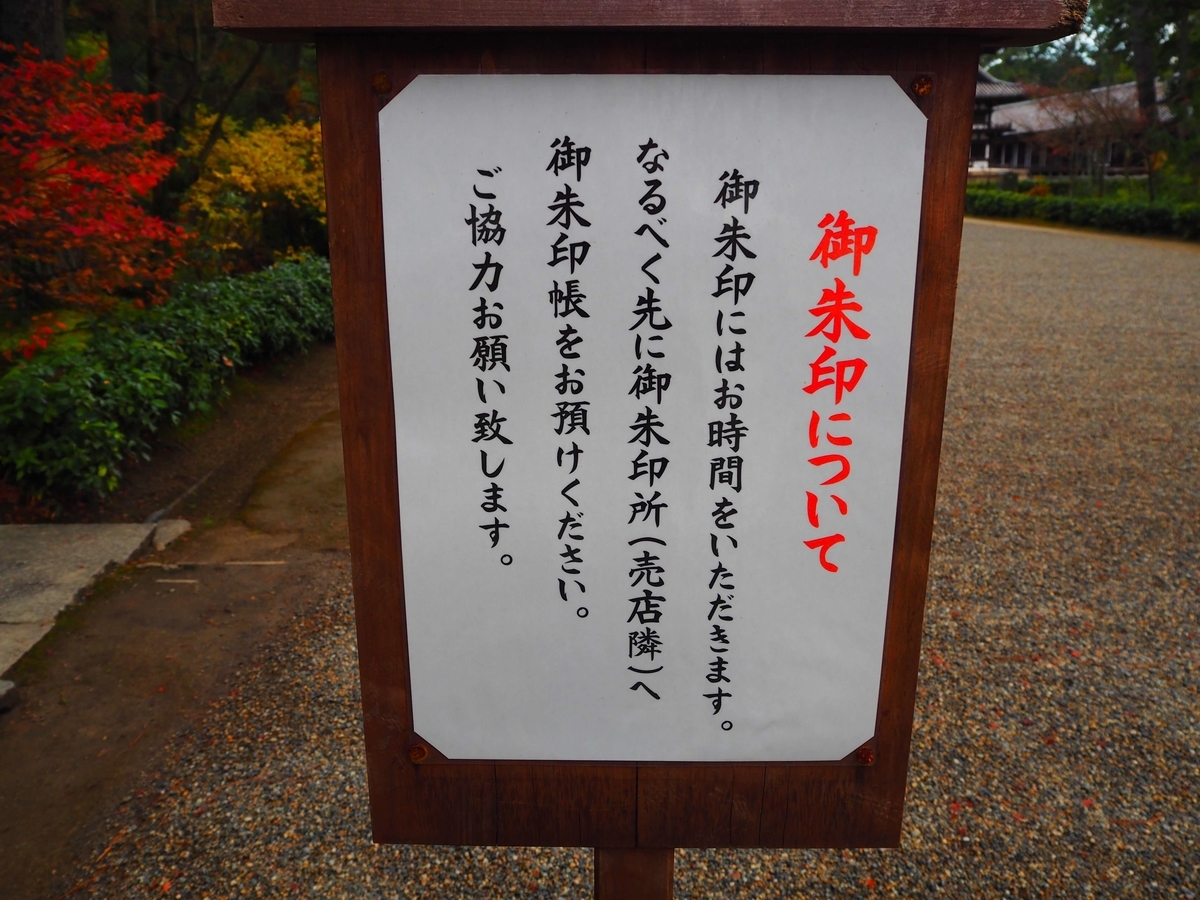 御朱印について
御朱印にはお時間をいただきます。
なるべく先に御朱印所(売店隣)へ
御朱印帳をお預けください。
ご協力お願い致します。